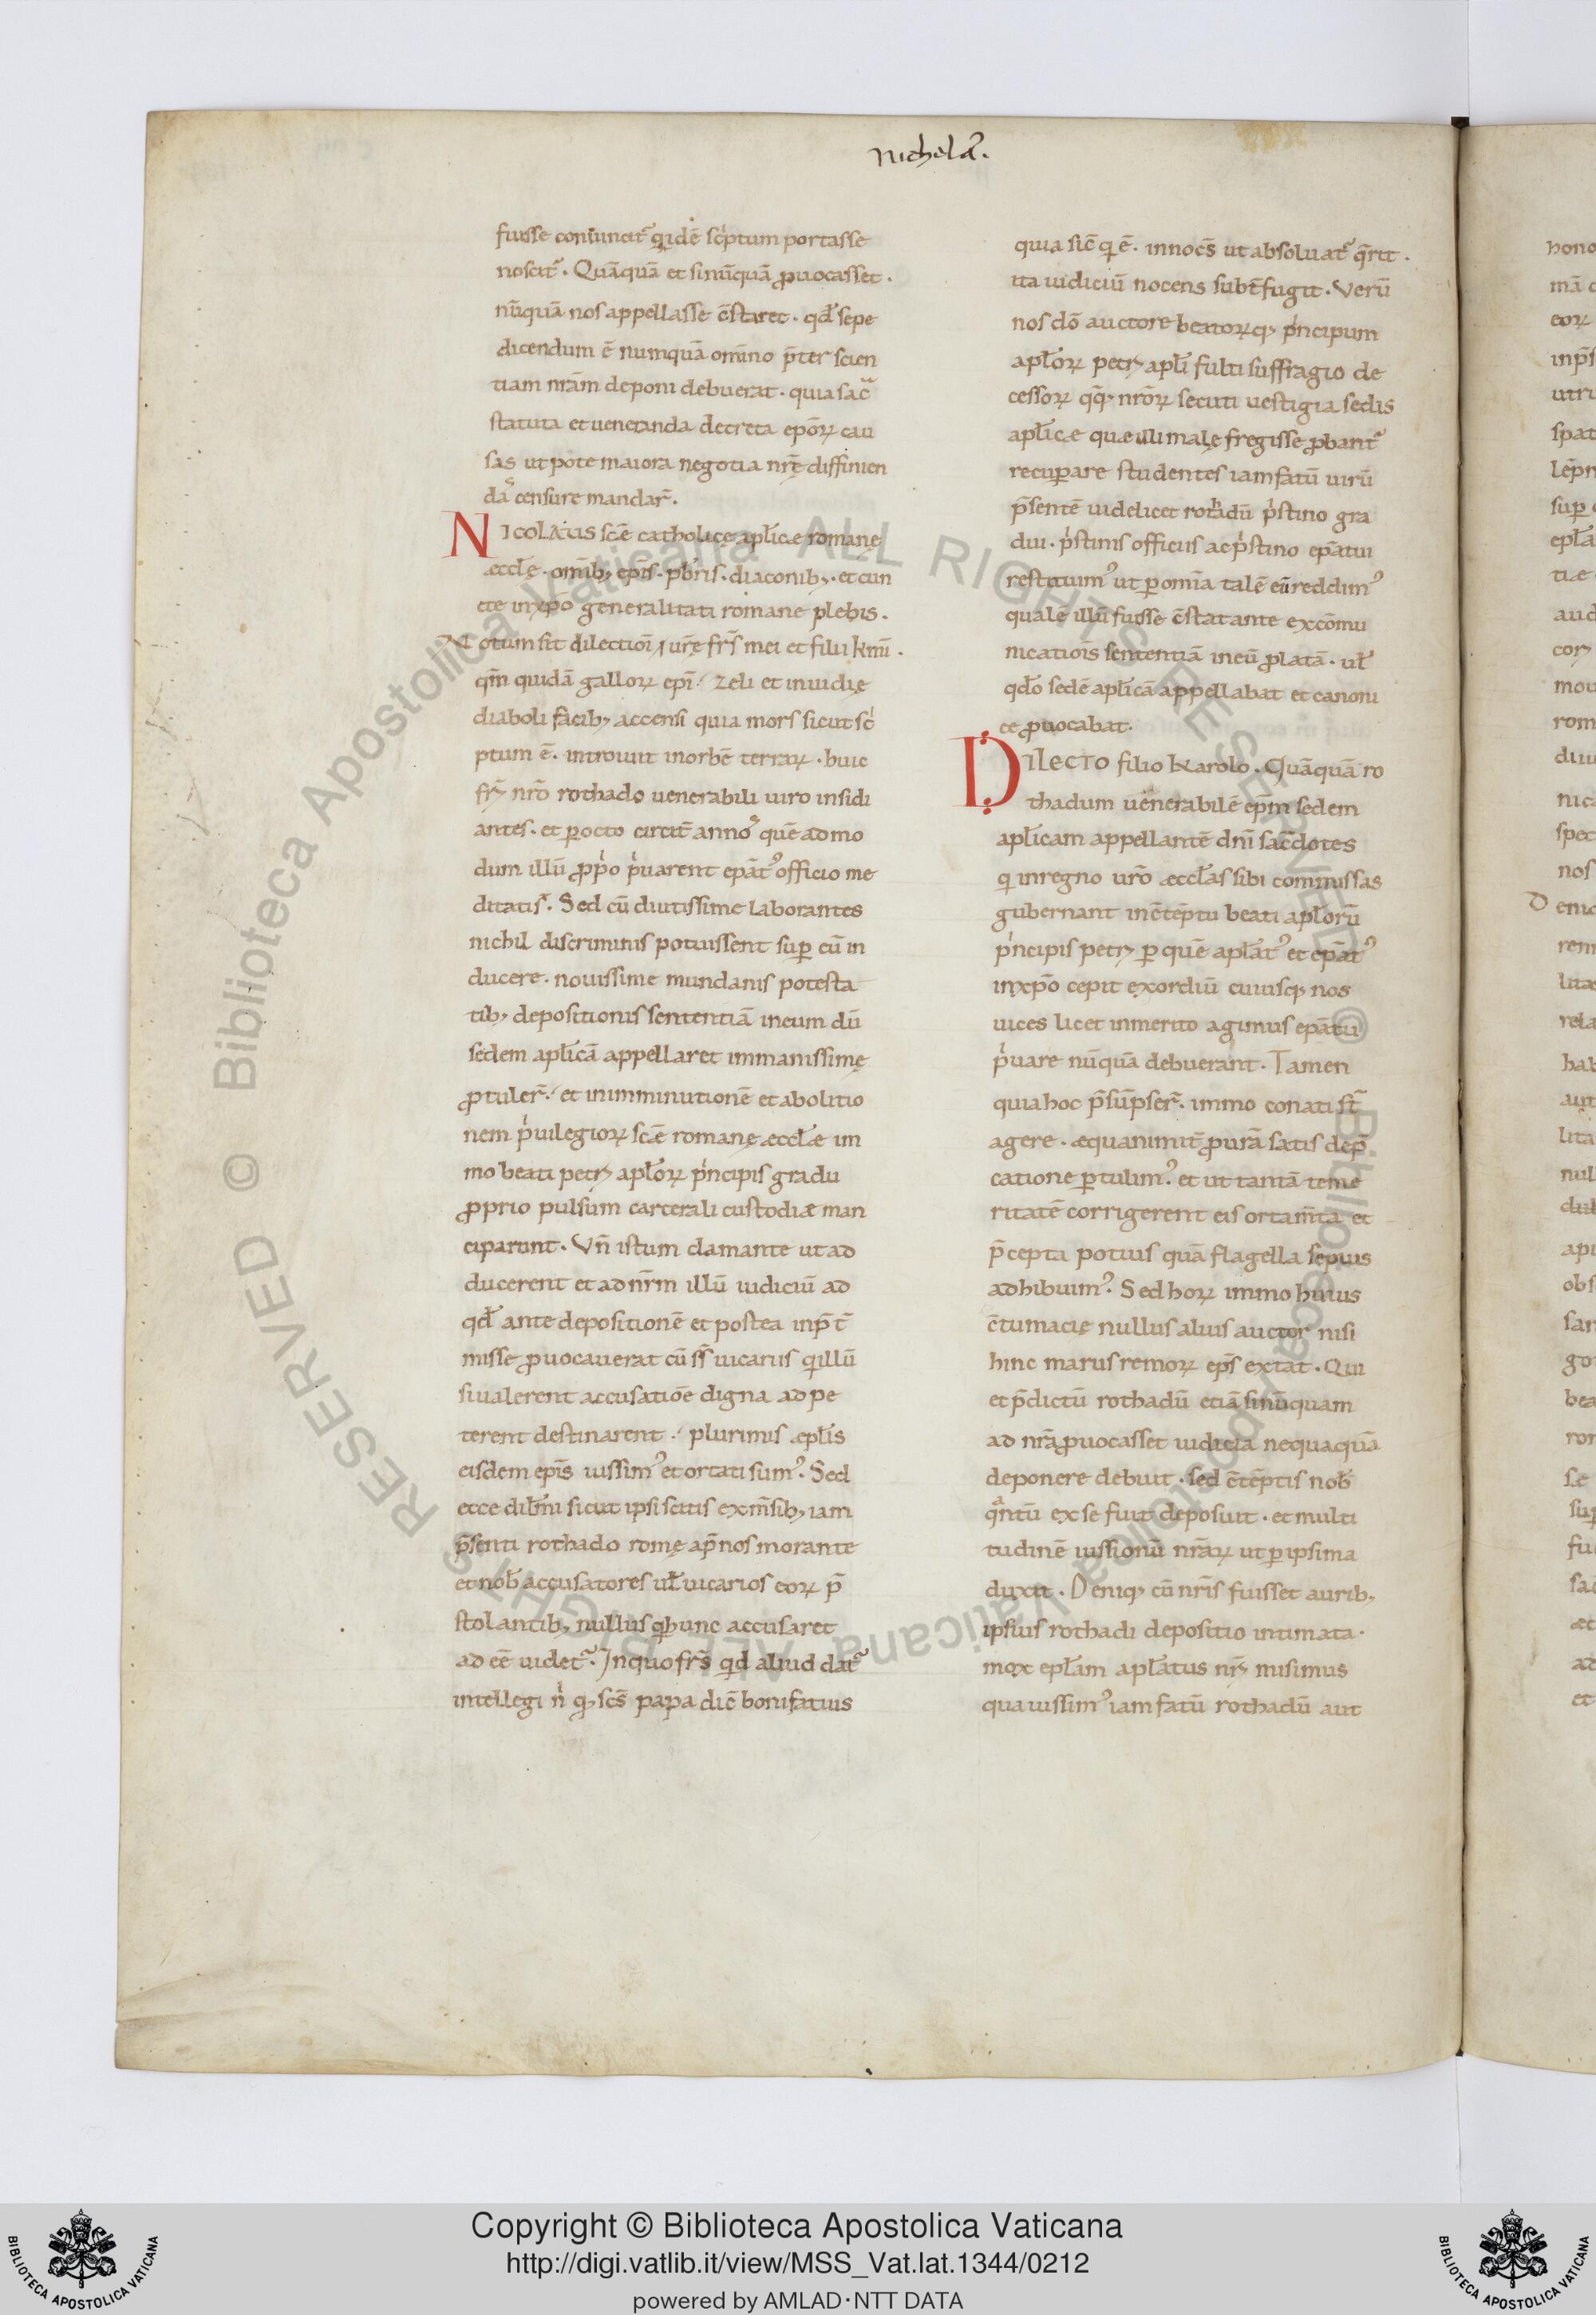 nichola᷒.
fuisse coniuncit᷒ qidē sc͛ptum portasse
noscit᷒. Quāquā et sinūquā ꝓuocasset.
nūquā nos appellasse c̄staret. qd̄ sepe
dicendum ē numquā omīno p̄ter scien
tiam nr̄am deponi debuerat. quia sac̄
statuta et ueneranda decreta epōꝝ cau
sas ut pote maiora negotia nr̄ę diffinien
da censure mandar̄.
NICOLAUS sc̄e catholicę apl̄icæ romanę
æccl̄ę. omīb; ep̄is. pb̄ris. diaconib;. et cun
cte in xp̄o generalitati romane plebis.
Notum sit dilectiōi ur̄ę fr̄s mei et filii kmī.
qm̄ quidā galloꝝ epī. zeli et inuidię
diaboli facib; accensi quia mors sicut sc͛
ptum ē. introiuit in orbē terraꝝ. huic
fr̄i nr̄o rothado uenerabili uiro insidi
antes. et ꝑ octo circit̄ annos quē ad mo
dum illū ꝓp͛o p͛uarent epāt᷒ officio me
ditatis̄. Sed cū diutissime laborantes
nichil discriminis potuissent suꝑ eū in
ducere. nouissime mundanis potesta
tib; depositionis sententiā in eum dū
sedem apl̄icā appellaret immanissimę
ꝓtuler̄. et in imminutionē et abolitio
nem p͛uilegioꝝ sc̄æ romanę æccl̄æ im
mo beati petri apl̄oꝝ p͛ncipis gradu
ꝓprio pulsum carcerali custodiæ man
ciparunt. Vn̄ istum clamante ut ad
ducerent et ad nr̄m illū iudiciū ad
qd̄ ante depositionē et postea inp̄t̄
misse ꝓuocauerat cū ss̄ uicariis q illū
si ualerent accusatiōe digna ad pe
terent destinarent. plurimis æpl̄is
eisdem ep̄is iussim᷒ et ortati sum᷒. Sed
ecce dil̄mi sicut ipsi scitis ex m̄sib; iam
p̄senti rothado romę ap̄ nos morante
et nob̄ accusatores ul̄ uicarios eoꝝ p̄
stolantib; nullus q hunc accusaret
ad eē uidet᷒. In quo fr̄s qid aliud dat᷒
intellegi n͛ q; sc̄s papa dic̄ bonifatius
quia sic̄ q ē. innocēs ut absoluat᷒ q̄rit.
ita iudiciū nocens subt̄fugit. Verū
nos dō auctore beatoꝝq; p͛ncipum
apl̄oꝝ petri apl̄i fulti suffragio de
cessoꝝ qq; nr̄oꝝ secuti uestigia sedis
apl̄icæ quæ illi malę fregisse ꝓbant᷒
recuꝑare studentes iam fatū uirū
p̄sentē uidelicet rothadū p͛stino gra
dui. p͛stinis officiis ac p͛stino epātui
restituim᷒ ut ꝑ omīa talē eū reddim᷒
qualē illū fuisse c̄stat ante excōmu
nicatiōis sententiā in eū ꝓlatā. ul̄
qd̄o sedē apl̄icā appellabat et canoni
ce ꝓuocabat.
DILECTO filio karolo. Quāquā ro
thadum uenerabilē ep̄m sedem
apl̄icam appellantē dn̄i sac̄dotes
q in regno ur̄o æccl̄as sibi commissas
gubernant in c̄tēptu beati apl̄orū
p͛ncipis petri ꝑ quē apl̄at᷒ et epāt᷒
in xp̄o cepit exordiū cuiusq; nos
uices licet inmerito agimus epātu
p͛uare nūquā debuerant. Tamen
quia hoc p̄sūpser̄. immo conati st̄
agere. æquanimit̄ ꝓ ur̄a satis dep̄
catione ꝑtulim᷒. et ut tantā teme
ritatē corrigerent eis ortam̄ta et
p̄cepta potius quā flagella sepius
adhibuim᷒. Sed hoꝝ immo huius
c̄tumacię nullus alius auctor nisi
hinc marus remoꝝ ep̄s extat. Qui
et p̄dictū rothadū etiā sinūquam
ad nr̄a ꝓuocasset iudicia nequaquā
deponere debuit. sed c̄tēptis nob̄
qantū ex se fuit deposuit. et multi
tudinē iussionū nr̄aꝝ ut ꝑ ipsima
duxit. Deniq; cū nr̄is fuisset aurib;
ipsius rothadi depositio intimata.
mox epl̄am apl̄atus nr̄i misimus
qua iussim᷒ iam fatū rothadū aut
Copyright © Biblioteca Apostolica Vaticana
http://digi.vatlib.it/view/MSS_Vat.lat.1344/0212
powered by AMLAD·NTT DATA